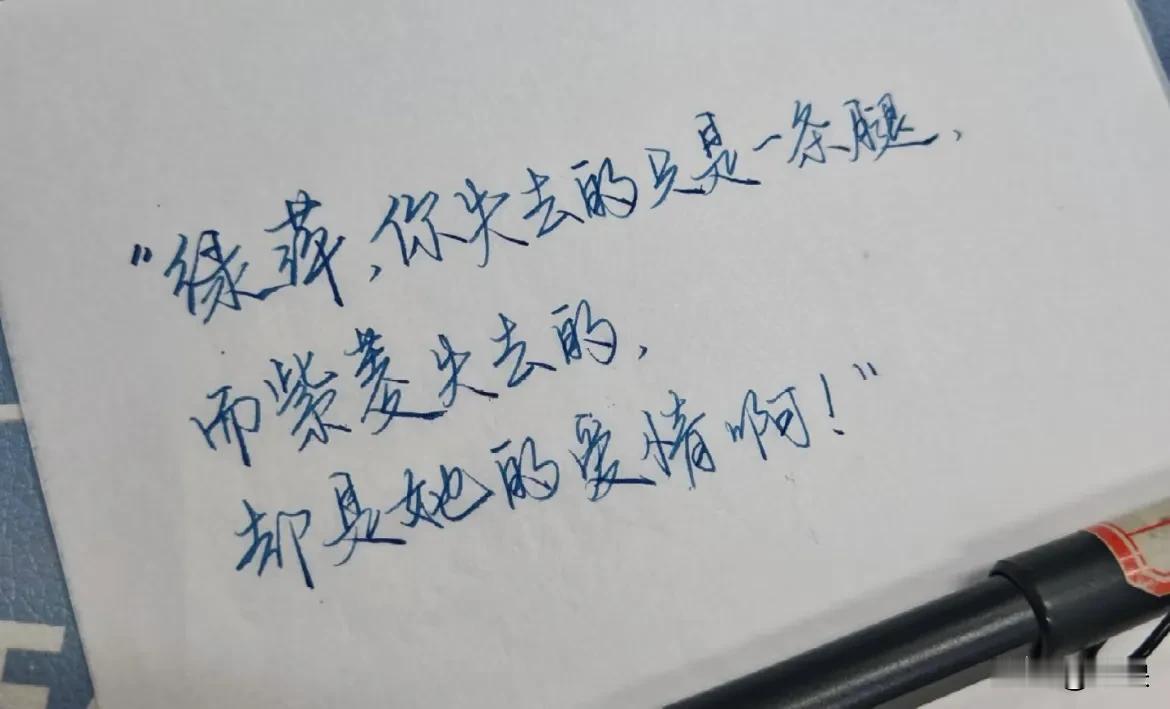 “绿萍,你失去的只是一条腿,
而紫菱失去的,
却是她的爱情啊!”